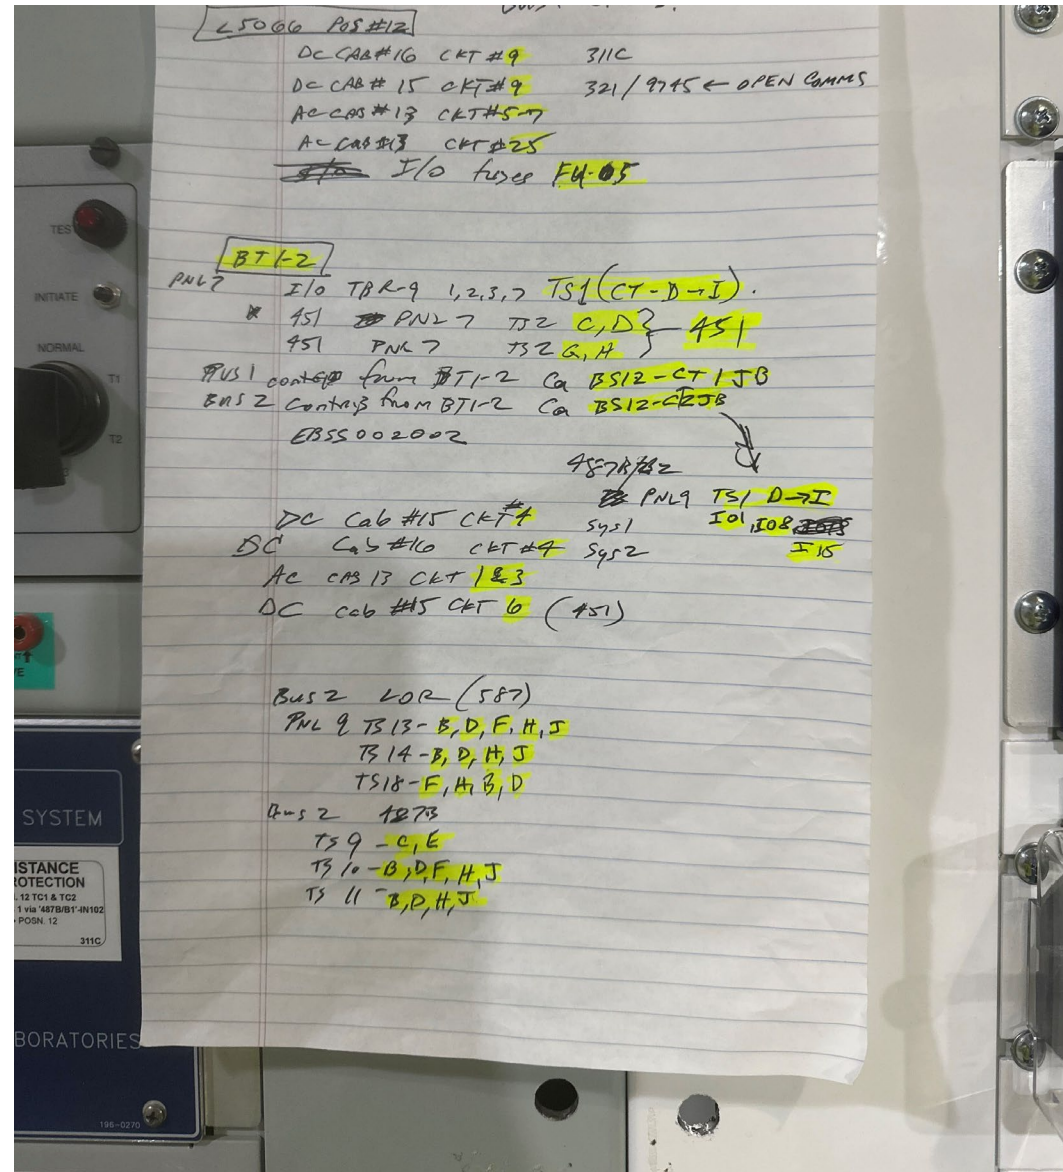 L5066 POS #12
DC CAB#16 CKT #9 311C
DC CAB# 15 CKT#9 321/9745 ← OPEN COMMS
AC CAB #13 CKT#5-7
AC CAB#13 CKT #25
I/O fuses FU-05
BT1-2
PNL7 I/O TBR-9 1,2,3,7 TS1 (CT-D→I).
* 451 PNL 7 TS2 C,D } 451
451 PNL 7 TS2 G,H }
BUS 1 from BT1-2 Ca BS12-CT1JB
BUS 2 contrib from BT1-2 Ca BS12-CT2JB
EBSS002002
487B/B2
PNL9 TS1 D→I
DC Cab #15 CKT #4 Sys1 I01, I08
DC Cab #16 CKT #4 Sys2 I15
AC CAB 13 CKT 1&3
DC Cab #15 CKT 6 (451)
Bus 2 LOR (587)
PNL 9 TS13- B, D, F, H, J
TS 14-B, D, H, J
TS18-F, H, B, D
Bus 2 487B
TS 9 -C, E
TS 10-B, D, F, H, J
TS 11 -B, D, H, J
TEST
INITIATE
NORMAL
T1
T2
SYSTEM
ISTANCE
ROTECTION
. 12 TC1 & TC2
1 via '487B/B1'-IN102
• POSN. 12
311C
BORATORIES
196-0270